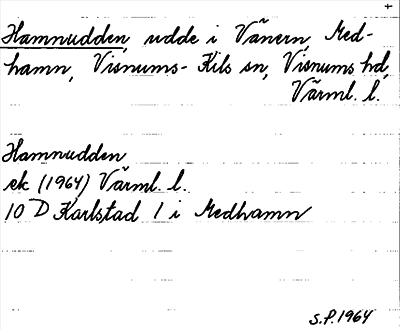 +
Hamnudden, udde i Vänern, Med-
hamn, Visnums-Kils sn, Visnums hd,
Värml. l.
Hamnudden
ek (1964) Värml. l.
10 D Karlstad 1 i Medhamn
S.P. 1964